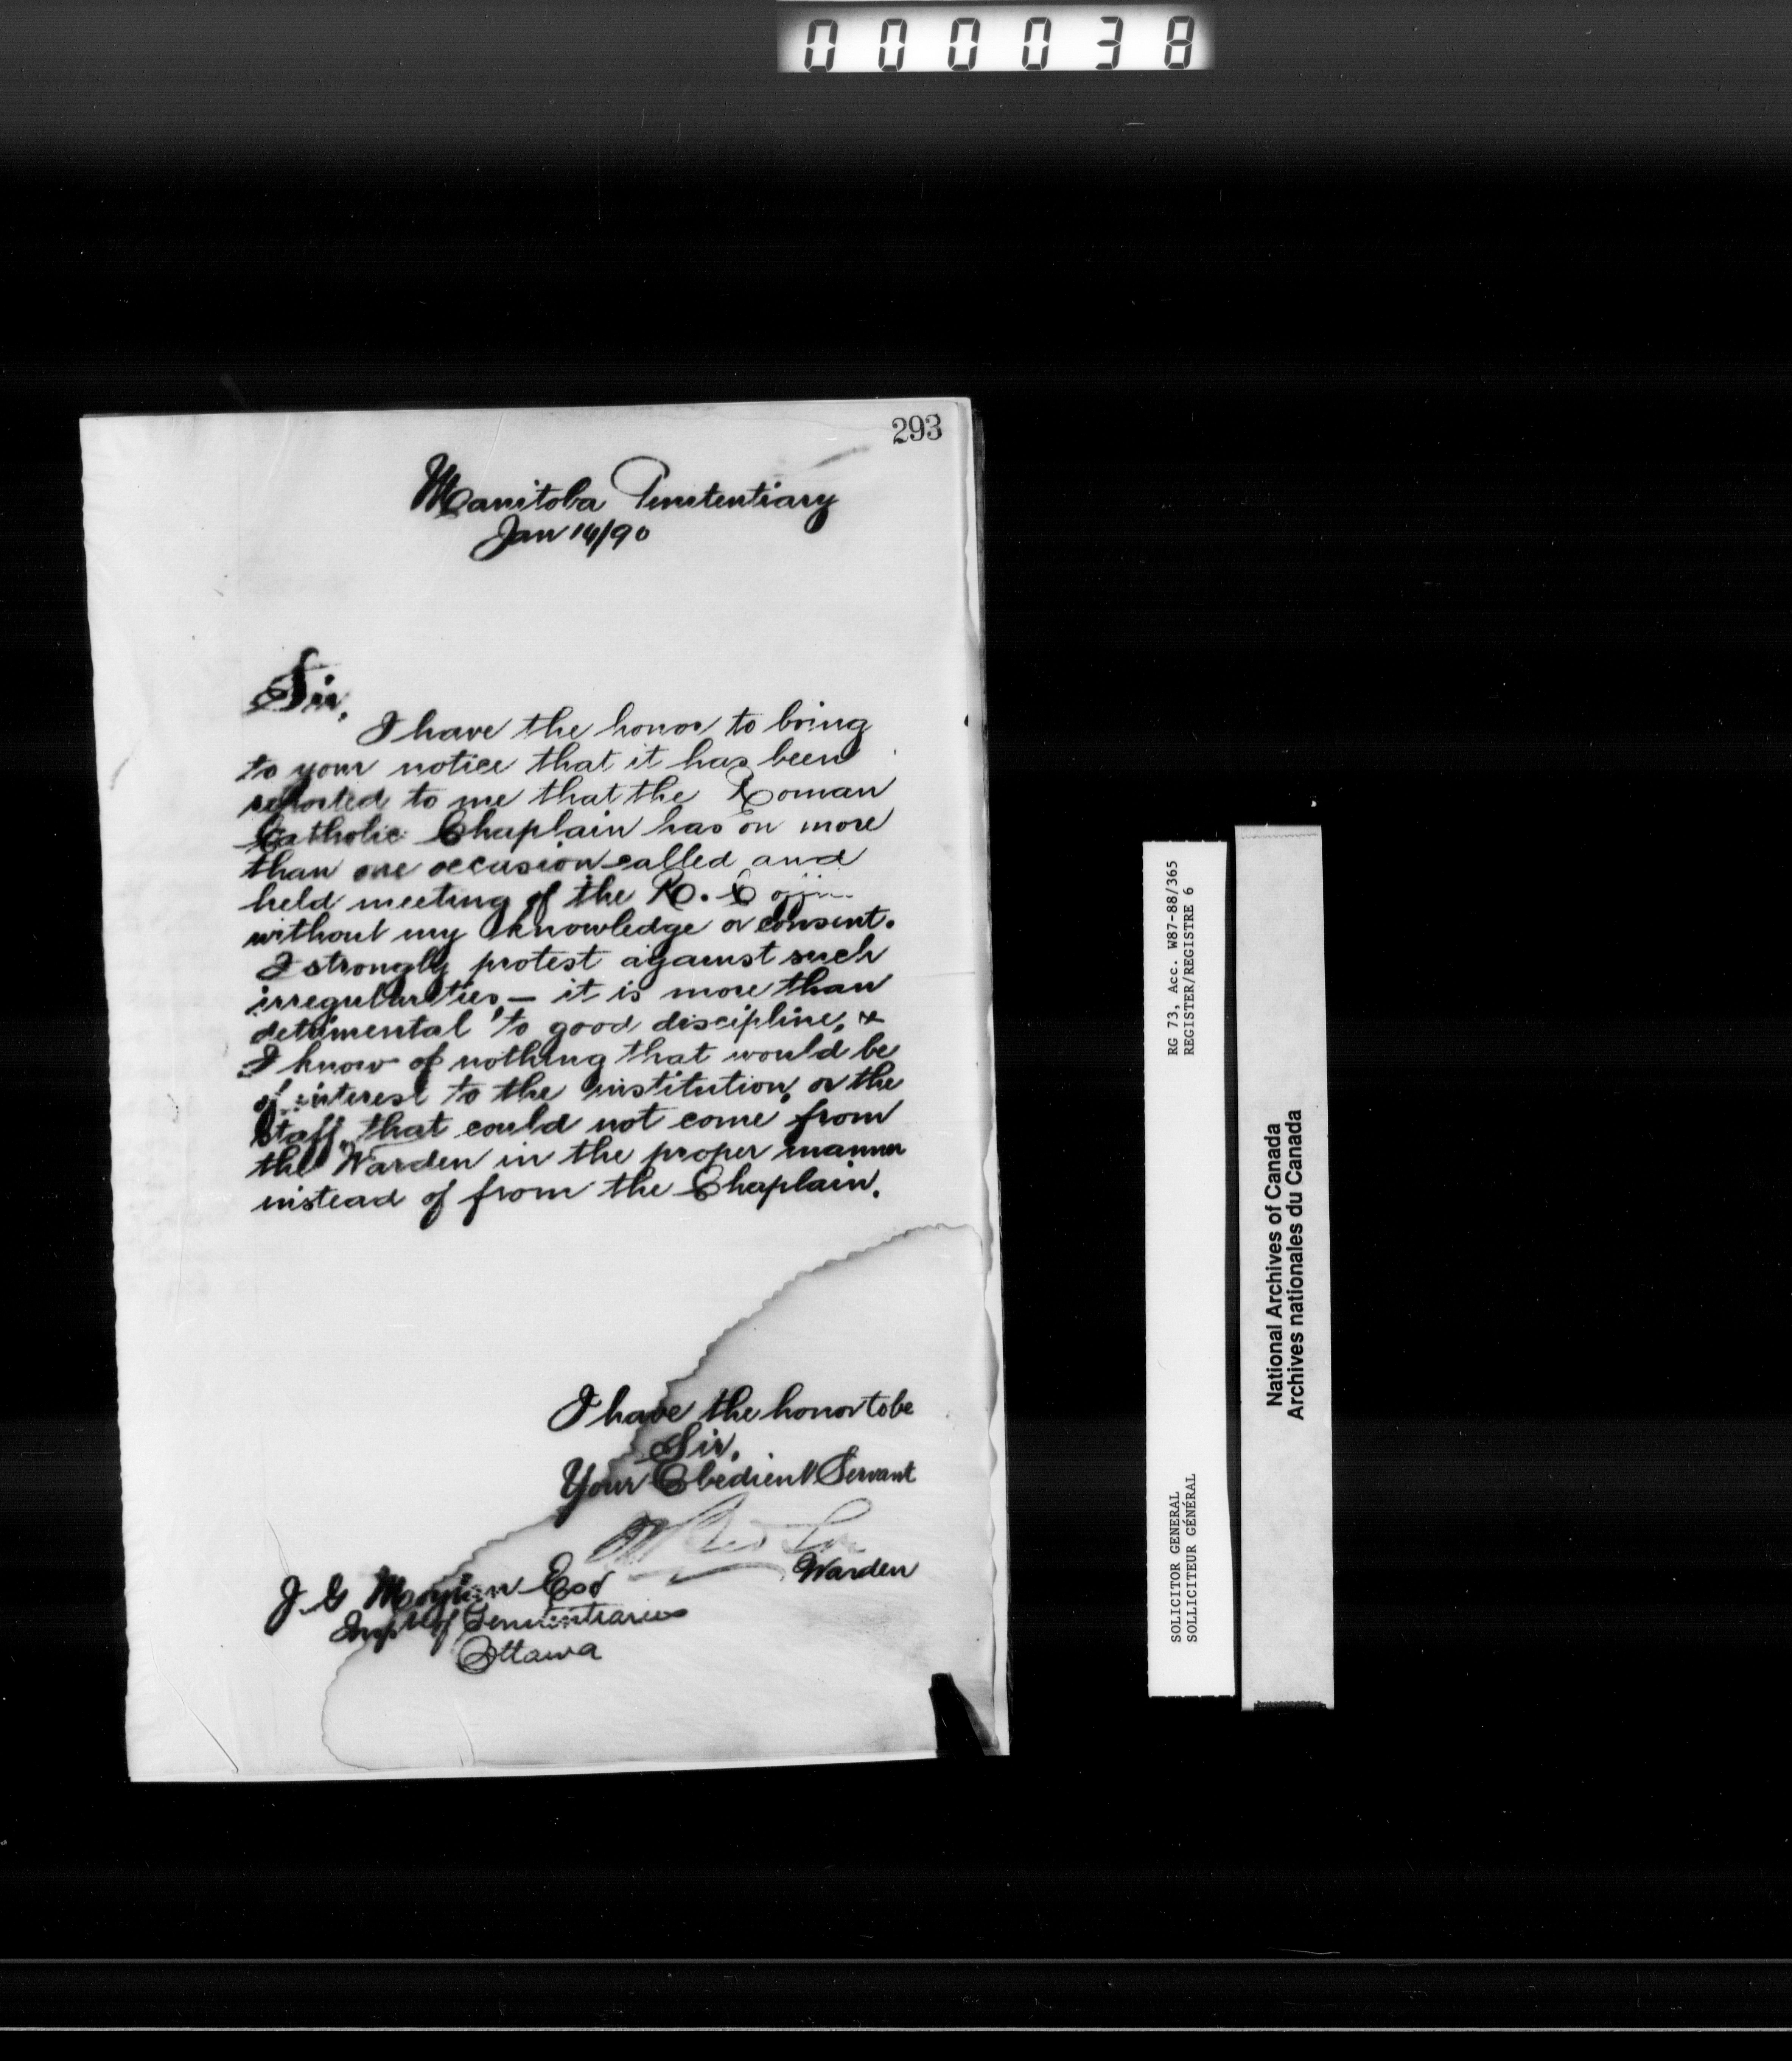 000038
293
Manitoba Penitentiary
Jan 14/90
Sir,
I have the honor to bring
to your notice that it has been
reported to me that the Roman
Catholic Chaplain has on more
than one occasion called and
held meeting of the R. C
without my knowledge or consent.
I strongly protest against such
irregularities, — it is more than
detrimental to good discipline, &
I know of nothing that would be
of interest to the institution, or the
Staff, that could not come from
the Warden in the proper manner
instead of from the Chaplain.
I have the honor to be
Sir,
Your Obedient Servant
Warden
J. G Moylan Esq
Insp. of Penitentiaries
Ottawa
RG 73, Acc. W87-88/365
REGISTER/REGISTRE 6
SOLICITOR GENERAL
SOLLICITEUR GÉNÉRAL
National Archives of Canada
Archives nationales du Canada